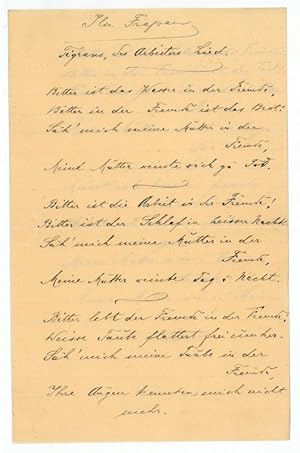 Ilse Frapan
Tigrans, des Arbeiters Lied.
Bitter ist das Wasser in der Fremde,
Bitter in der Fremde ist das Brot!
Säh' mich meine Mutter in der
Fremde,
Meine Mutter weinte sich zu Tod.
Bitter ist die Arbeit in der Fremde!
Bitter ist der Schlaf in heisser Nacht.
Säh' mich meine Mutter in der
Fremde,
Meine Mutter weinte Tag u. Nacht.
Bitter lebt der Fremde in der Fremde,
Weisse Taube flattert frei umher.
Säh' mich meine Taube in der
Fremde
Ihre Augen kennten mich nicht
mehr.